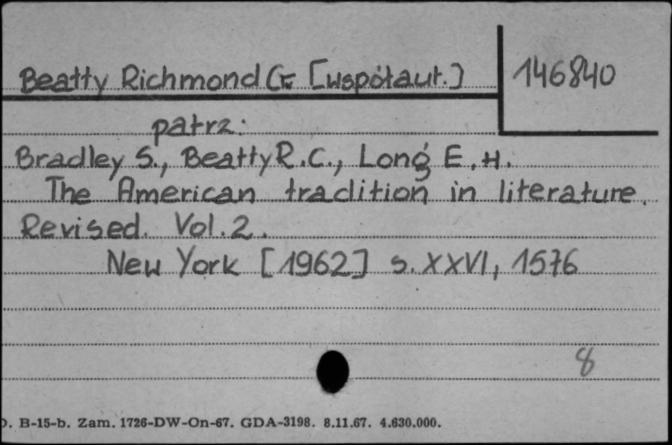 Beatty Richmond C. [współaut.]
146840
patrz:
Bradley S., Beatty R.C., Long E.H.
The American tradition in literature.
Revised. Vol.2.
New York [1962] s. XXVI, 1576
8
D. B-15-b. Zam. 1726-DW-On-67. GDA-3198. 8.11.67. 4.630.000.